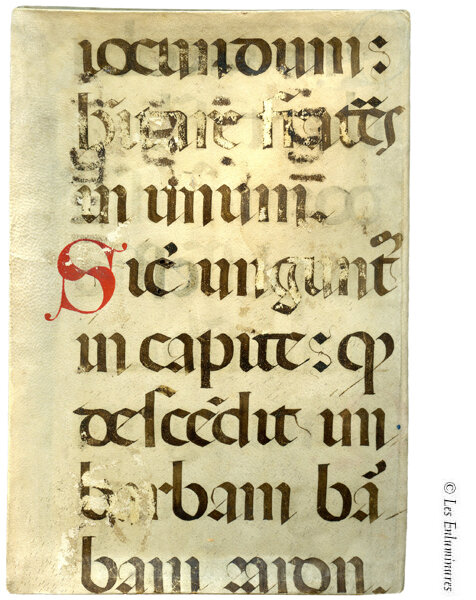 iocundum:
hītare fratres
in unum.
Sic̄ ungūnt᷑
in capite: ꝙ
descēdit in
barbam bā-
bam aaron.
© Les Enluminures